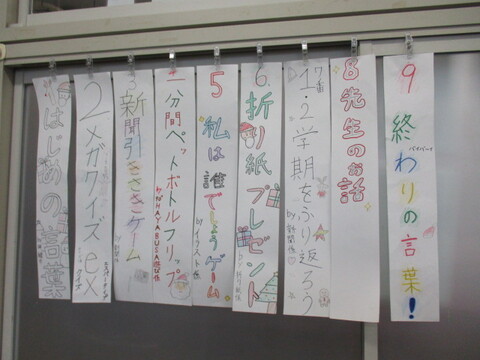 1 はじめの言葉
2 メガクイズex
3 新聞引きさきゲーム
4 一分間ペットボトルフリップ
by HAYABUSA
5 私は誰でしょうゲーム
by イラスト係
6 折り紙プレゼント
7番
1・2学期をふり返ろう
by 新聞係
8 先生のお話
9 終わりの言葉!
バイバーイ